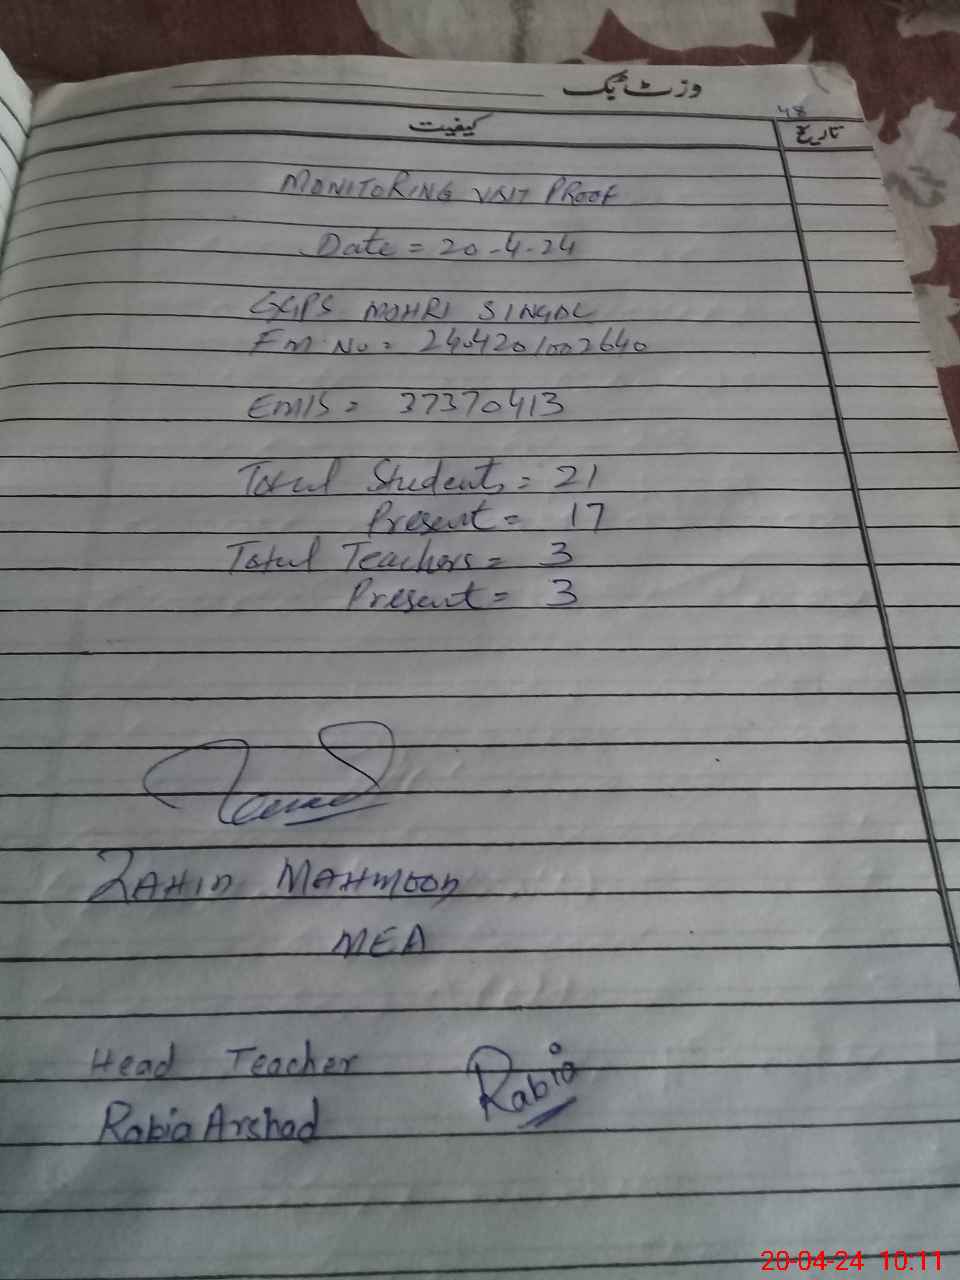 وزٹ بک
48
کیفیت
تاریخ
MONITORING VISIT PROOF
Date = 20-4-24
GGPS MOHRI SINGAL
Fm No = 2404201002640
EMIS = 37370413
Total Students = 21
Present = 17
Total Teachers = 3
Present = 3
ZAHID MAHMOOD
MEA
Head Teacher
Rabia
Rabia Arshad
20-04-24 10:11